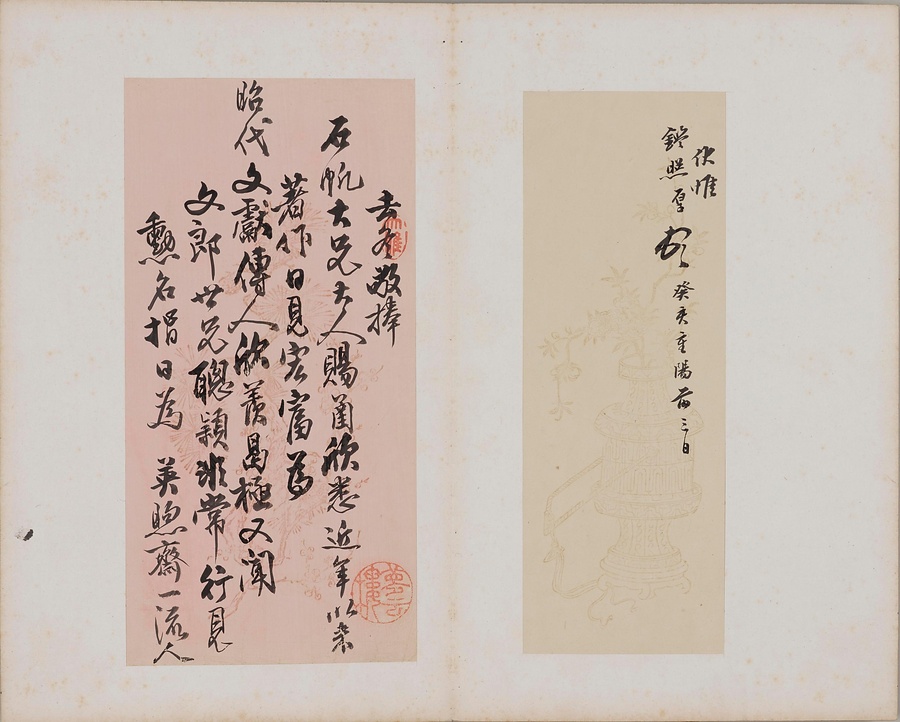 伏惟
鑒照厚
癸亥重陽前三日
去冬敬捧
石帆大兄大人賜函欣悉近年以來
著作日見宏富為
昭代文獻傳人欣羨曷極又聞
文郎世兄聰穎非常行見
勳名指日為 英煦齋一流人